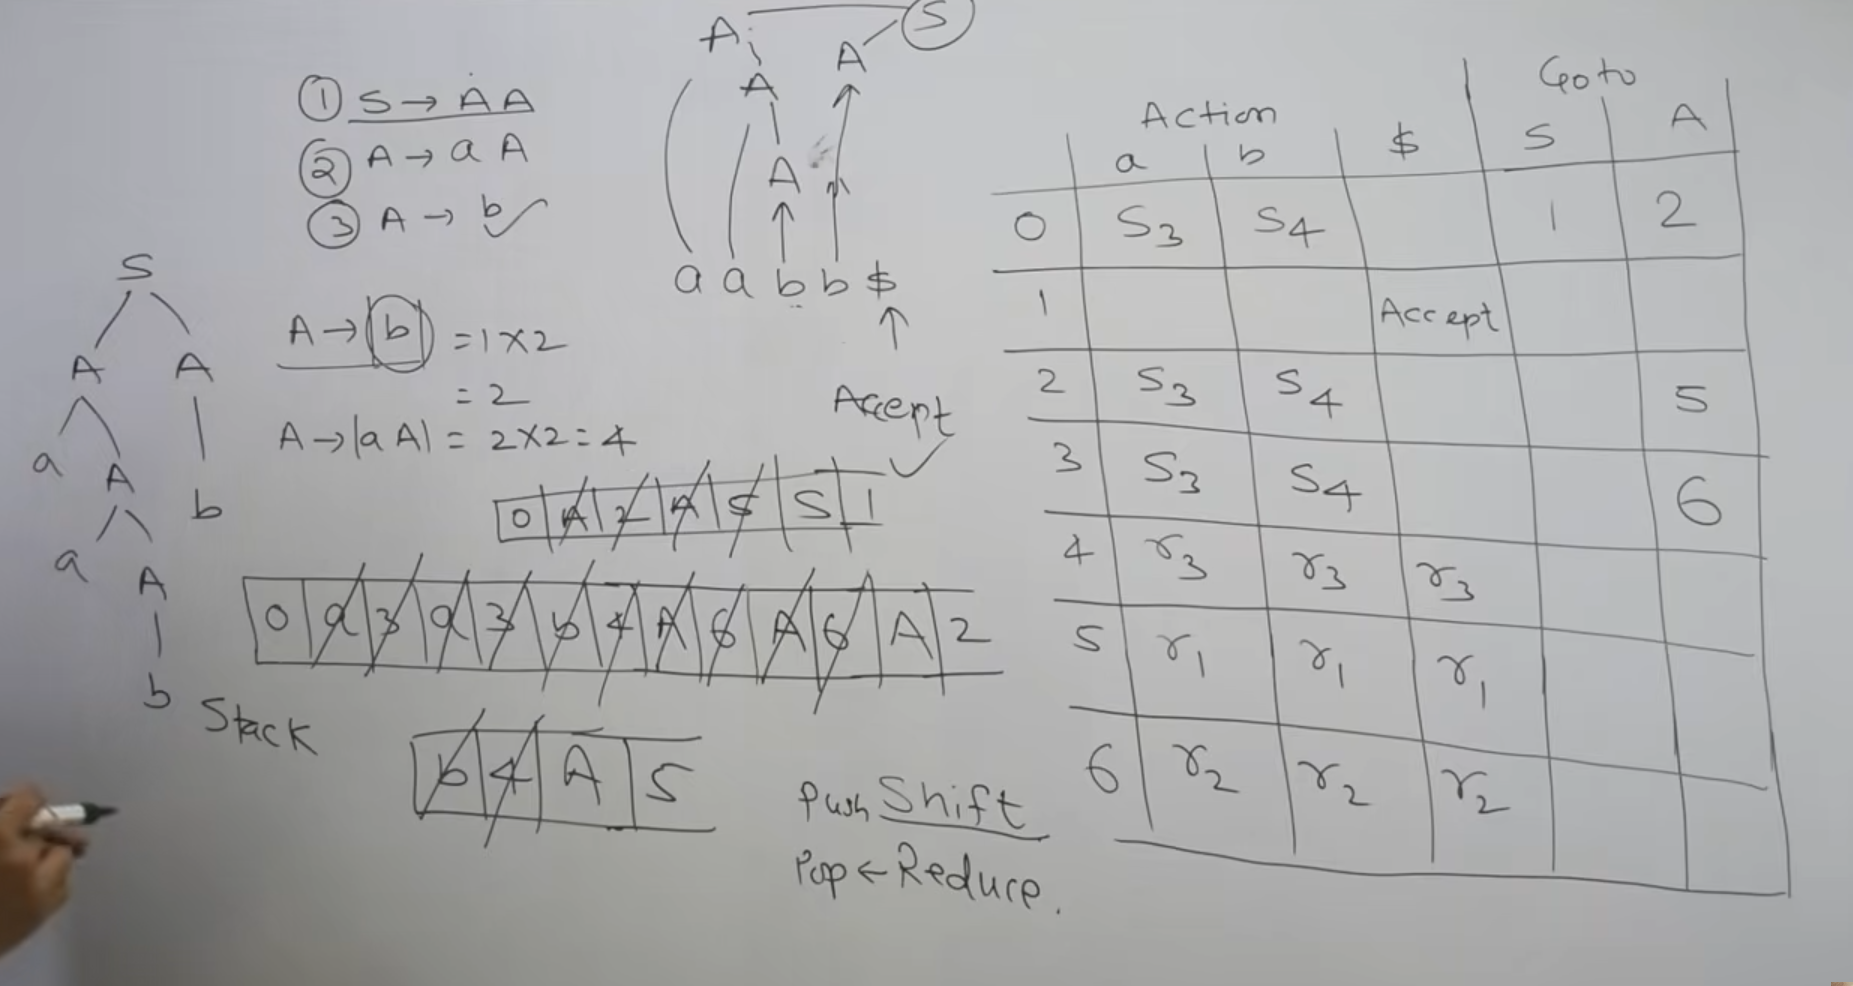 ① S → A A
② A → a A
③ A → b ✓
A S
A A
A
a a b b $
Accept
S
A A
a A b
a A
b
A → b = 1 x 2
= 2
A → |a A| = 2 x 2 = 4
0 A 2 A 5 S 1
0 a 3 a 3 b 4 A 6 A 6 A 2
Stack
b 4 A 5
Push Shift
Pop ← Reduce.
Action Goto
a b $ S A
0 S3 S4 1 2
1 Accept
2 S3 S4 5
3 S3 S4 6
4 r3 r3 r3
5 r1 r1 r1
6 r2 r2 r2